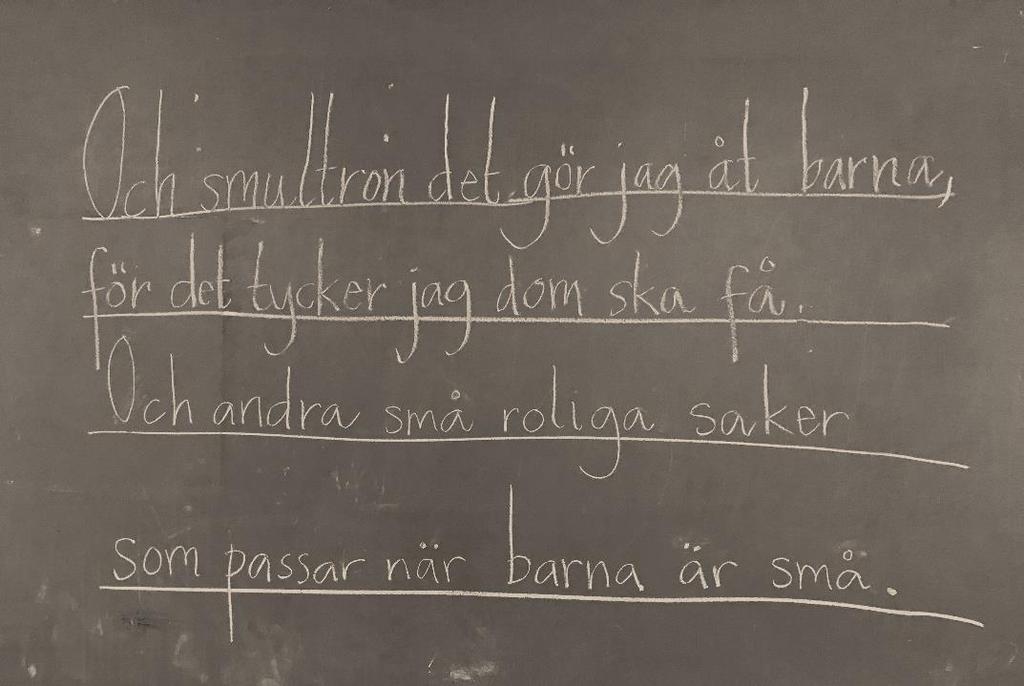 Och smultron det gör jag åt barna,
för det tycker jag dom ska få.
Och andra små roliga saker
som passar när barna är små.